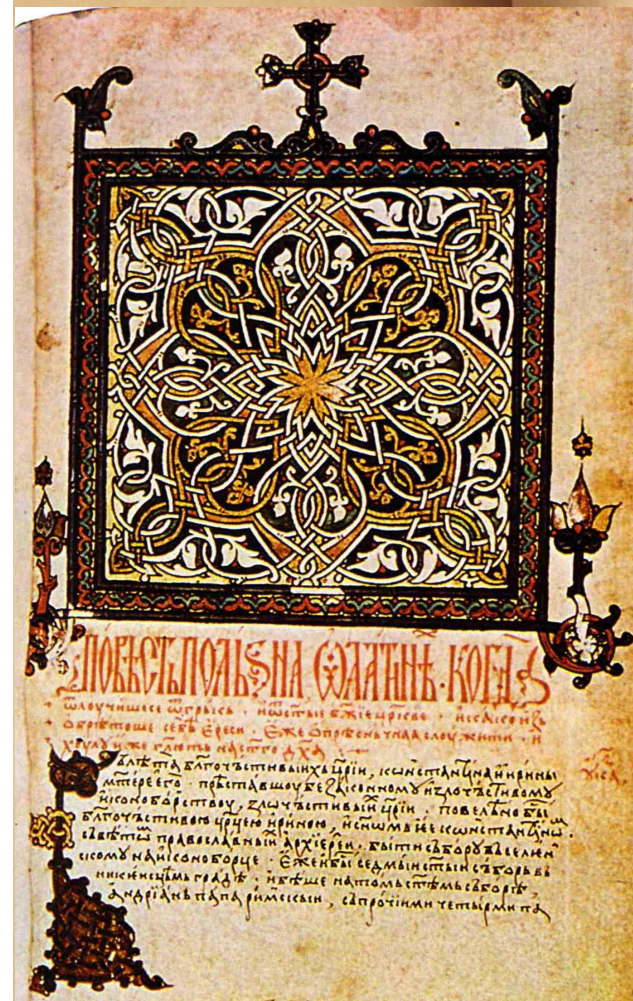 ПОВѢСТЬ ПОЛЬЅНА Ѿ ЛАТЫНѢ · КОГДА
ѿлоучишесе ѿ грькъ · и ѿ стые бжїе црксве ·
обрѣтоше себѣ ереси · еже опрѣсньчнаа слоужити · и
хоулоу иже глють на стго дха
лѣта блгочьстивыихь црїи, кѡнстанцїна и ирины
мтере его · прѣставшоу безаконномоу и злочьстивомоу
иконоборствоу, злочьстивыи црїи · повелѣно бы
блгочьстивою црцею ириною, и сномь ее кѡнстанцїнѡ
съвѣтѡ православныи архїереи · быти събороу въселен
скомоу на иконоборце · еже и бы седмыи стыи съборь вь
никеисцѣмь градѣ · и бѣше на томь стѣмь съборѣ,
андрїань папа римскыи, сь прочїими четырми па